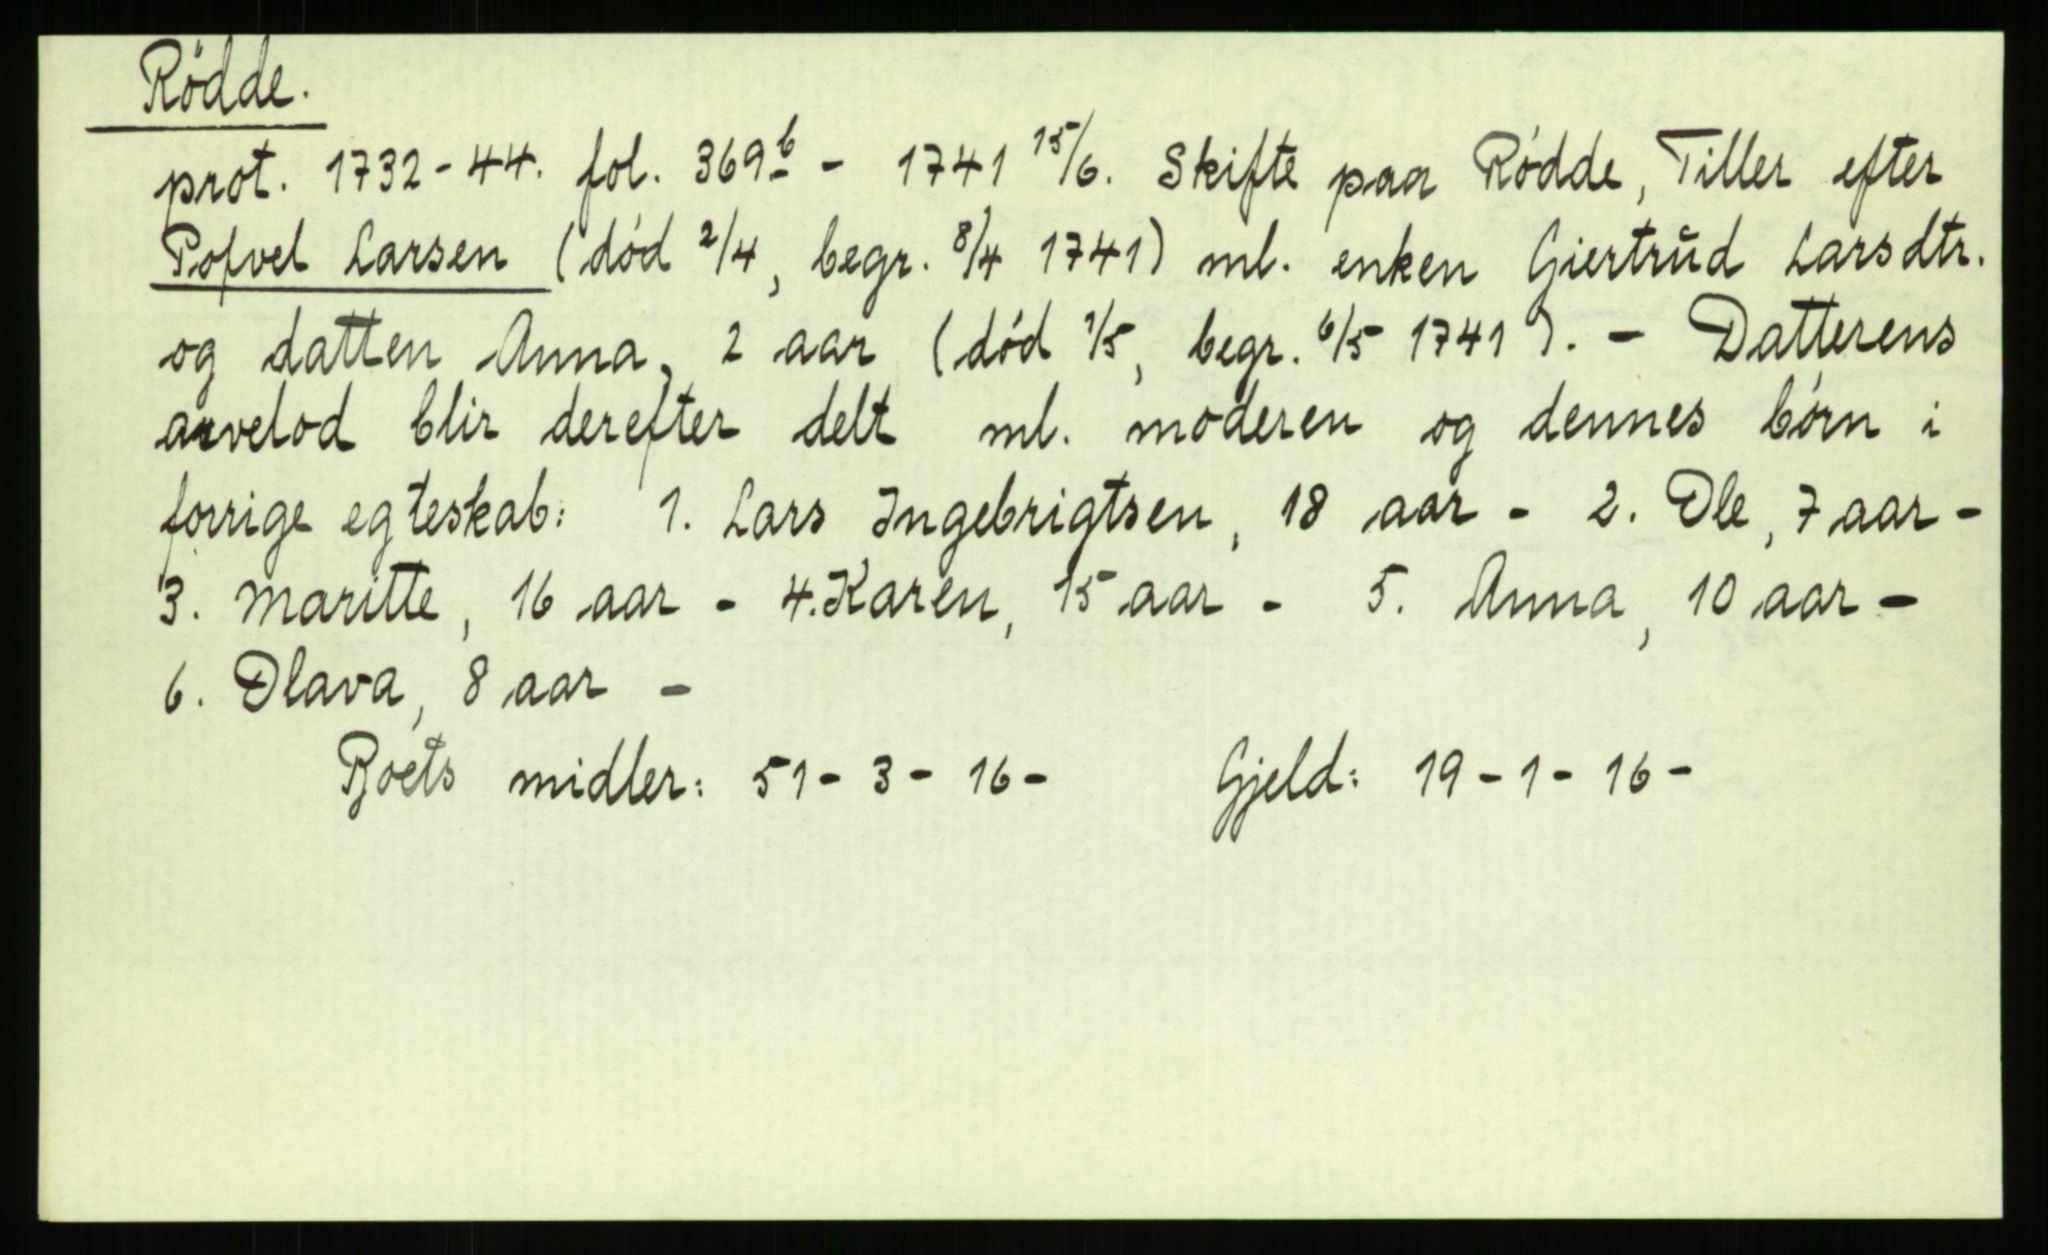 Rödde.
prot. 1732-44. fol. 369b - 1741 15/6. Skifte paa Rödde, Tiller efter
Pofvel Larsen (död 2/4, begr. 8/4 1741) ml. enken Giertrŭd Larsdtr.
og datten Anna, 2 aar (död 1/5, begr. 6/5 1741). - Datterens
arvelod blir derefter delt ml. moderen og dennes börn i
forrige egteskab: 1. Lars Ingebrigtsen, 18 aar - 2. Ole, 7 aar -
3. Maritte, 16 aar - 4. Karen, 15 aar - 5. Anna, 10 aar -
6. Olava, 8 aar -
Boets midler: 51-3-16- Gjeld: 19-1-16-